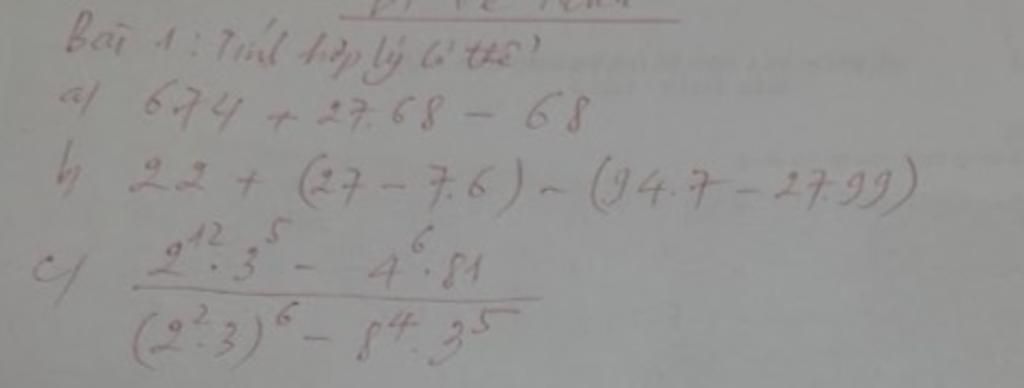 Bài 1: Tính hợp lý có thể
a) 674 + 27.68 - 68
b) 22 + (27 - 7.6) - (94.7 - 27.99)
c) \frac{2^{12}.3^5 - 4^6.81}{(2^2.3)^6 - 8^4.3^5}